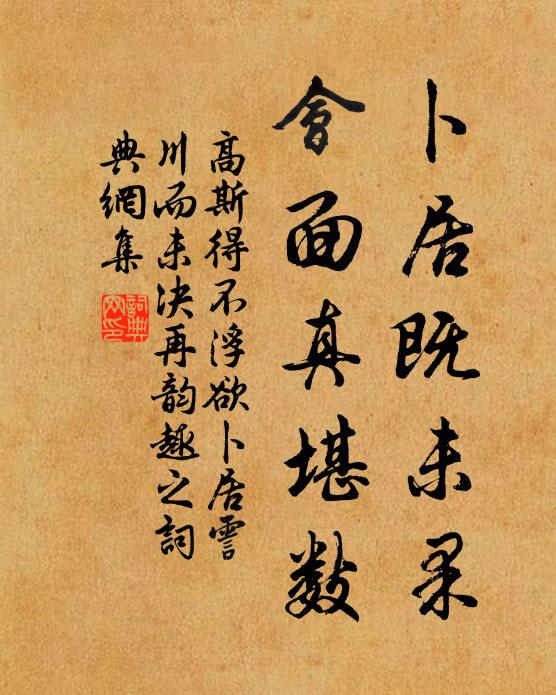 卜居既未果
會面真堪數
高斯得不浮欲卜居霅
川而未决再韵趣之詞
典網集
詞典網印